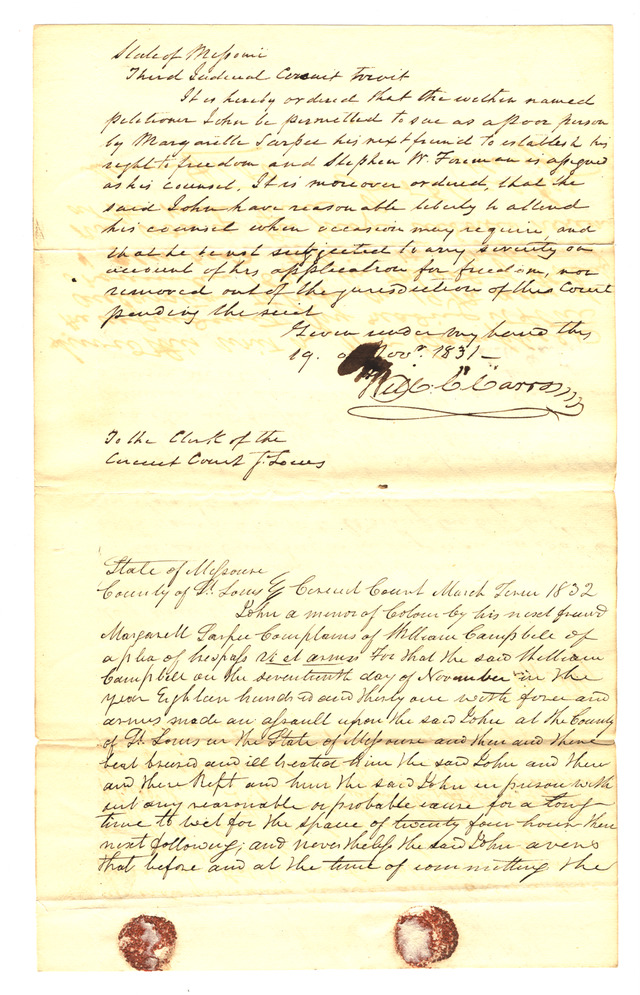 State of Missouri
Third Judicial Circuit towit
It is hereby ordered that the within named
petitioner John be permitted to sue as a poor person
by Margarette Sarpee his next friend to establish his
right to freedom and Stephen W. Foreman is assigned
as his counsel. It is moreover ordered, that the
said John have reasonable liberty to attend
his counsel when occasion may require, and
that he be not subjected to any severity on
account of his application for freedom, nor
removed out of the jurisdiction of this Court
pending the suit
Given under my hand this
19. of Novr. 1831—
Will: C: Carr
To the Clerk of the
Circuit Court St. Louis
State of Missouri
County of St. Louis Circuit Court March Term 1832
John a minor of Colour by his next friend
Margarett Sarpee Complains of William Campbell of
a plea of trespass vi et armis For that the said William
Campbell on the seventeenth day of November in the
year Eighteen hundred and thirty one with force and
armes made an assault upon the said John at the County
of St. Louis in the State of Missouri and then and there
beat bruised and ill treated him the said John and then
and there kept and him the said John in prison with
out any reasonable or probable cause for a long
time to wit for the space of twenty four hours then
next following; and nevertheless the said John avers
that before and at the time of committing the